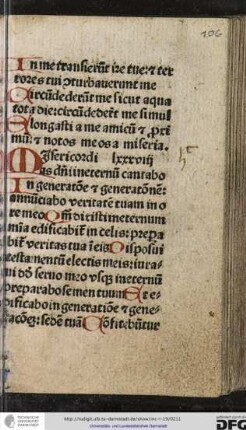 106
In me transierūt ire tue: ⁊ ter
rores tui ꝯturbauerunt me
Circūdederūt me sicut aqua
tota die: circūdederūt me simul
Elongasti a me amicū ⁊ ꝓxi
mū: ⁊ notos meos a miseria.
Misericordi lxxxviij
as dn̄i ineternū cantabo
In generatōe ⁊ generatōnē:
annūciabo veritatē tuam in o
re meo Qm̄ dixisti ineternum
mīa edificabit̄ in celis: prepa
bit̄ veritas tua ī eis Disposui
testamentū electis meis: iura
ui dō seruo meo vsqꝫ ineternū
preparabo semen tuum Et e
dificabo in generatiōe ⁊ gene
ratōeꝫ: sedē tuā Cōfitebūtur
Universitäts- und Landesbibliothek Darmstadt
DFG